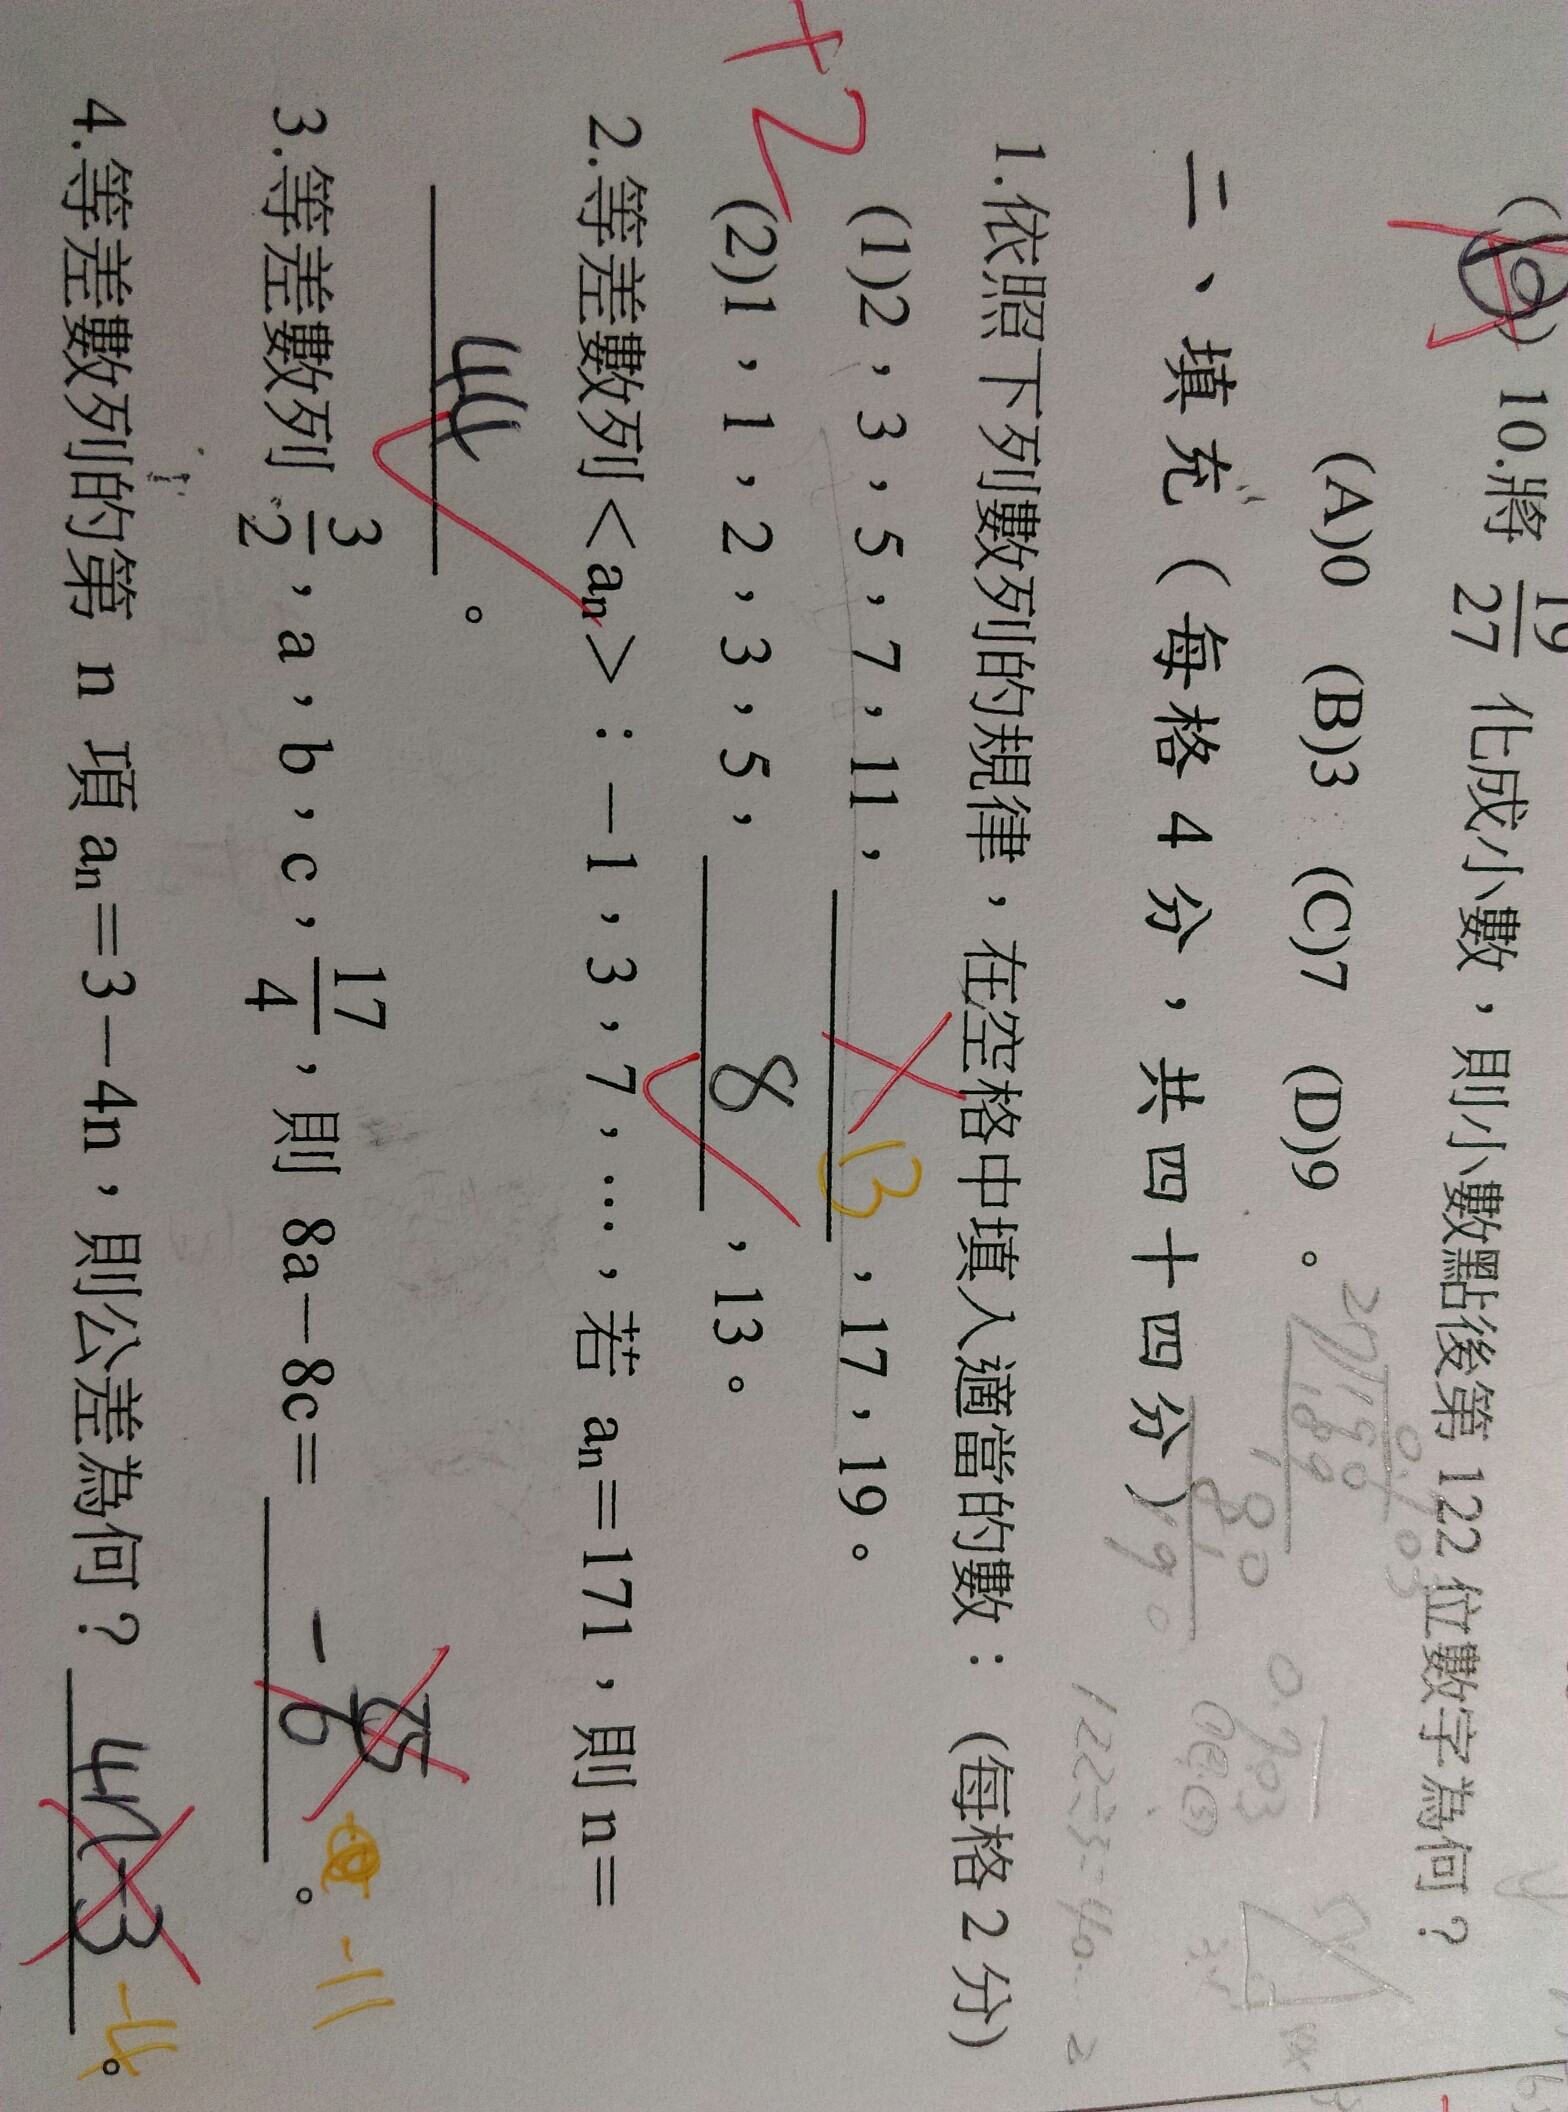 (A) 10.將 19/27 化成小數，則小數點後第 122 位數字為何？
(A)0 (B)3 (C)7 (D)9 。
二、填充（每格 4 分，共四十四分）
1.依照下列數列的規律，在空格中填入適當的數：(每格 2 分)
(1)2，3，5，7，11，13，17，19。
+2
(2)1，1，2，3，5，8，13。
2.等差數列＜an＞：－1，3，7，…，若 an＝171，則 n＝
44 。
3.等差數列 3/2，a，b，c，17/4，則 8a－8c＝ 。 -11
4.等差數列的第 n 項 an＝3－4n，則公差為何？ 4n-3 。 -4
0.703
122÷3=40...2